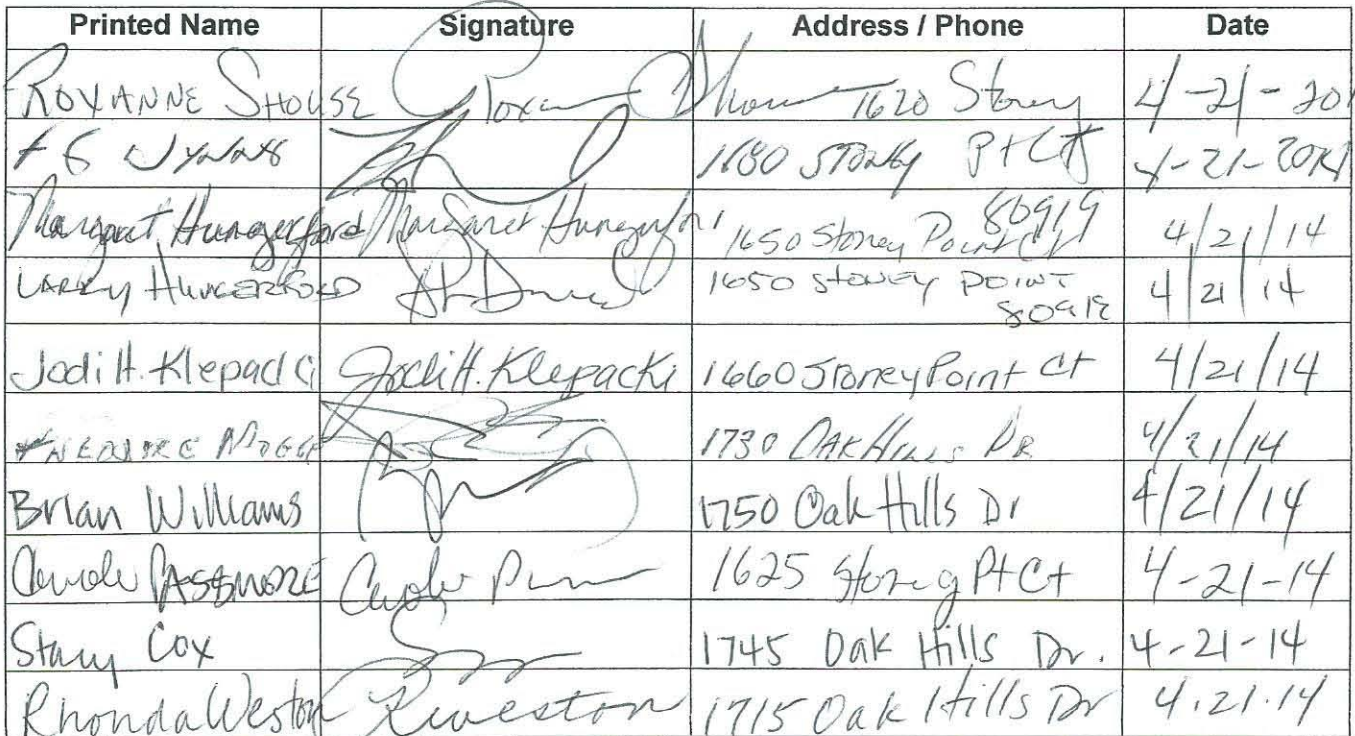 Printed Name Signature Address / Phone Date
ROXANNE SHOUSE Roxanne Shouse 1620 Stoney 4-21-201
1680 STONEY Pt Ct 4-21-2014
Margaret Hungerford Margaret Hungerford 1650 Stoney Point Ct 80919 4/21/14
LARRY HUNGERFORD 1650 STONEY POINT 80919 4/21/14
Jodi H. Klepacki Jodi H. Klepacki 1660 Stoney Point Ct 4/21/14
1730 OAK HILLS DR 4/21/14
Brian Williams 1750 Oak Hills Dr 4/21/14
Carole PASSMORE Carole 1625 Stoney Pt Ct 4-21-14
Stacy Cox 1745 Oak Hills Dr. 4-21-14
Rhonda Weston RWeston 1715 Oak Hills Dr 4.21.14